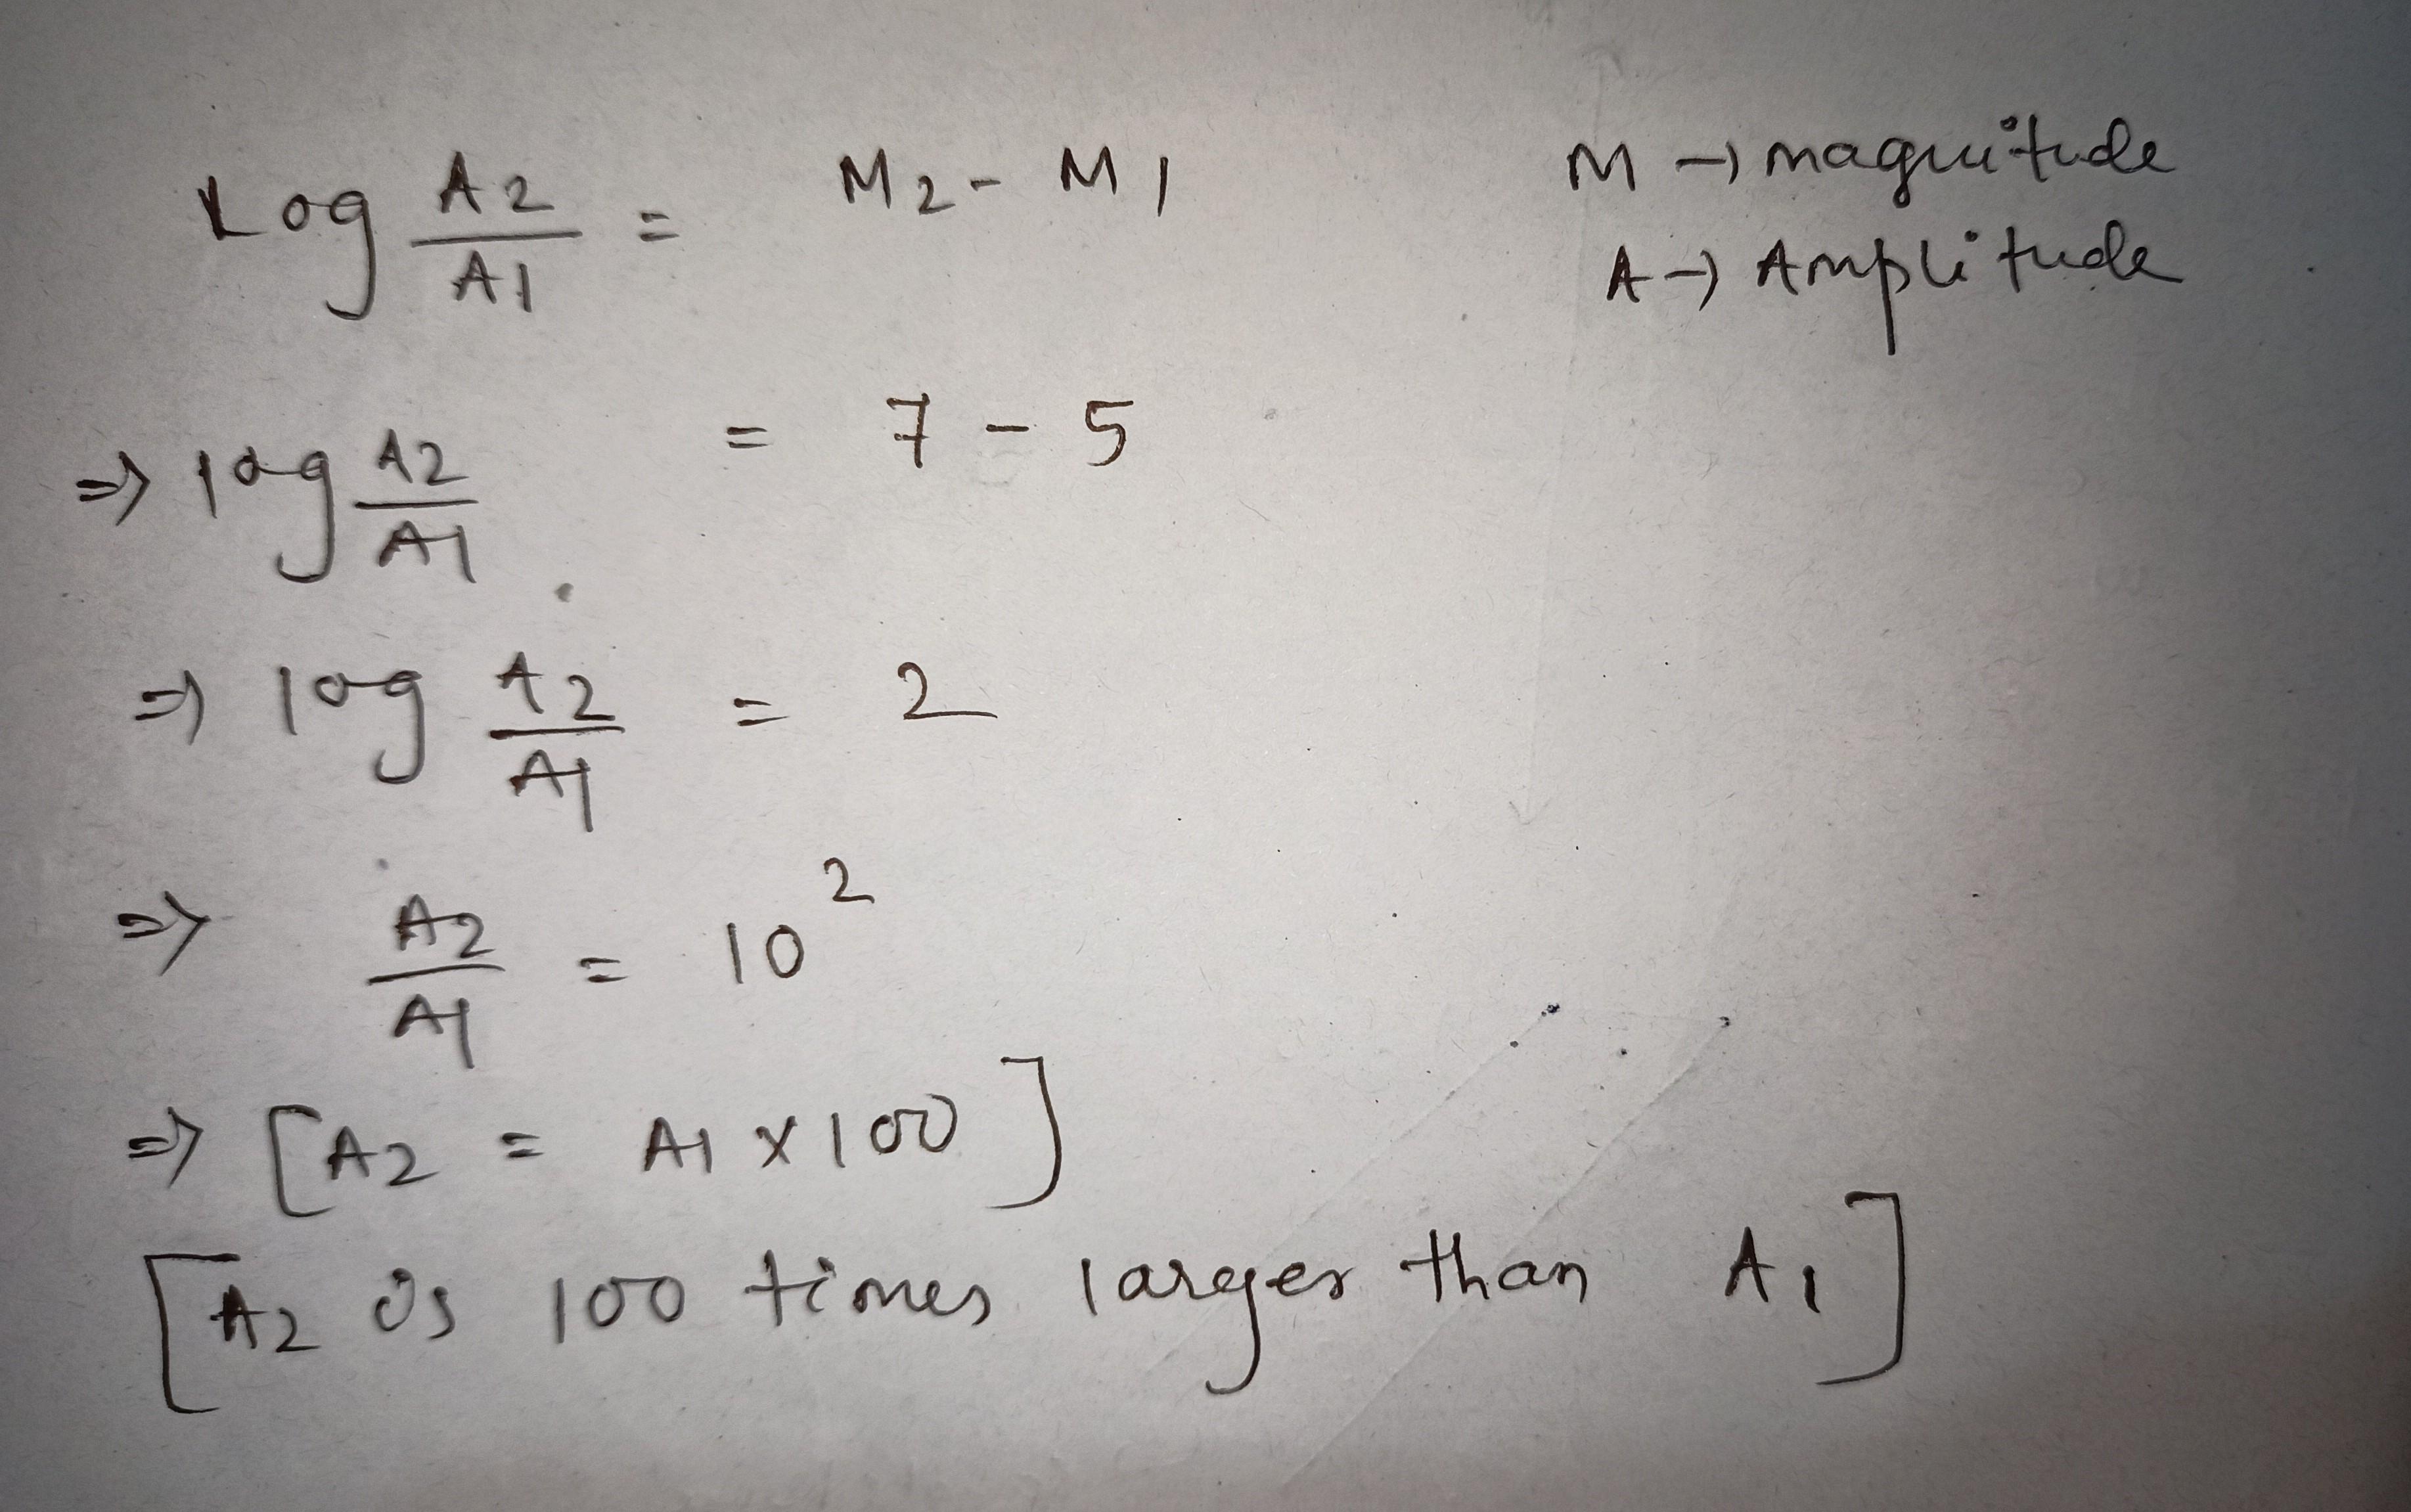 Log A2/A1 = M2 - M1
M → magnitude
A → Amplitude
⇒ log A2/A1 = 7 - 5
⇒ log A2/A1 = 2
⇒ A2/A1 = 10²
⇒ [A2 = A1 × 100]
[A2 is 100 times larger than A1]